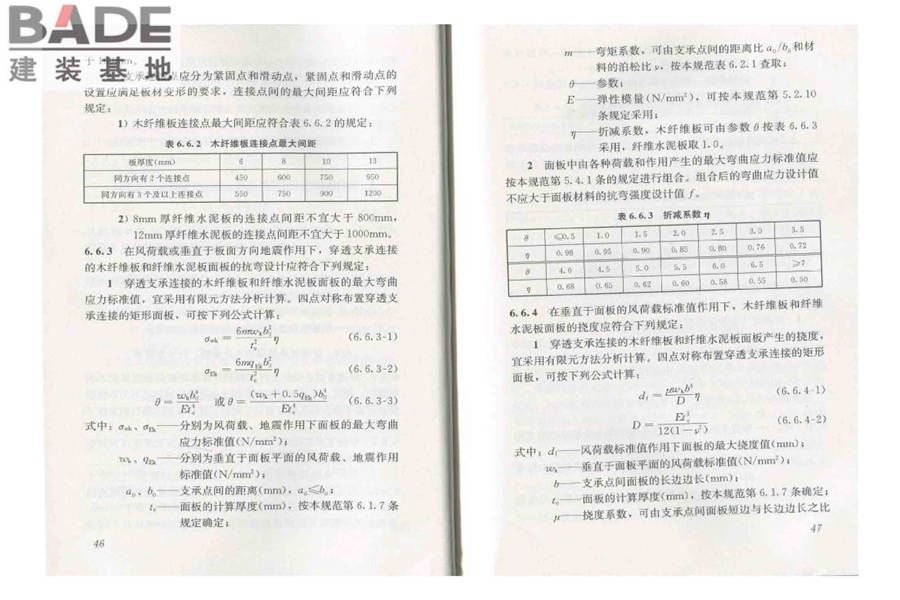 BADE
建装基地
应分为紧固点和滑动点，紧固点和滑动点的
设置应满足板材变形的要求，连接点间的最大间距应符合下列
规定：
1）木纤维板连接点最大间距应符合表 6.6.2 的规定；
表 6.6.2 木纤维板连接点最大间距
板厚度(mm) 6 8 10 13
同方向有 2 个连接点 450 600 750 950
同方向有 3 个及以上连接点 550 750 900 1200
2）8mm 厚纤维水泥板的连接点间距不宜大于 800mm，
12mm 厚纤维水泥板的连接点间距不宜大于 1000mm。
6.6.3 在风荷载或垂直于板面方向地震作用下，穿透支承连接
的木纤维板和纤维水泥板面板的抗弯设计应符合下列规定：
1 穿透支承连接的木纤维板和纤维水泥板面板的最大弯曲
应力标准值，宜采用有限元方法分析计算。四点对称布置穿透支
承连接的矩形面板，可按下列公式计算：
σwk = 6mwkb₀²/tₑ² η (6.6.3-1)
σEk = 6mqEkb₀²/tₑ² η (6.6.3-2)
θ = wkb₀⁴/Etₑ⁴ 或 θ = (wk + 0.5qEk)b₀⁴/Etₑ⁴ (6.6.3-3)
式中：σwk、σEk——分别为风荷载、地震作用下面板的最大弯曲
应力标准值(N/mm²)；
wk、qEk——分别为垂直于面板平面的风荷载、地震作用
标准值(N/mm²)；
a₀、b₀——支承点间的距离(mm)，a₀≤b₀；
tₑ——面板的计算厚度(mm)，按本规范第 6.1.7 条
规定确定；
46
m——弯矩系数，可由支承点间的距离比 a₀/b₀ 和材
料的泊松比 ν，按本规范表 6.2.1 查取；
θ——参数；
E——弹性模量(N/mm²)，可按本规范第 5.2.10
条规定采用；
η——折减系数，木纤维板可由参数 θ 按表 6.6.3
采用，纤维水泥板取 1.0。
2 面板中由各种荷载和作用产生的最大弯曲应力标准值应
按本规范第 5.4.1 条的规定进行组合。组合后的弯曲应力设计值
不应大于面板材料的抗弯强度设计值 f。
表 6.6.3 折减系数 η
θ ≤0.5 1.0 1.5 2.0 2.5 3.0 3.5
η 0.98 0.95 0.90 0.85 0.80 0.76 0.72
θ 4.0 4.5 5.0 5.5 6.0 6.5 ≥7
η 0.68 0.65 0.62 0.60 0.58 0.55 0.50
6.6.4 在垂直于面板的风荷载标准值作用下，木纤维板和纤维
水泥板面板的挠度应符合下列规定：
1 穿透支承连接的木纤维板和纤维水泥板面板产生的挠度，
宜采用有限元方法分析计算。四点对称布置穿透支承连接的矩形
面板，可按下列公式计算：
df = μwkb⁴/D η (6.6.4-1)
D = Etₑ³/12(1−ν²) (6.6.4-2)
式中：df——风荷载标准值作用下面板的最大挠度值(mm)；
wk——垂直于面板平面的风荷载标准值(N/mm²)；
b——支承点间面板的长边边长(mm)；
tₑ——面板的计算厚度(mm)，按本规范第 6.1.7 条确定；
μ——挠度系数，可由支承点间面板短边与长边边长之比
47